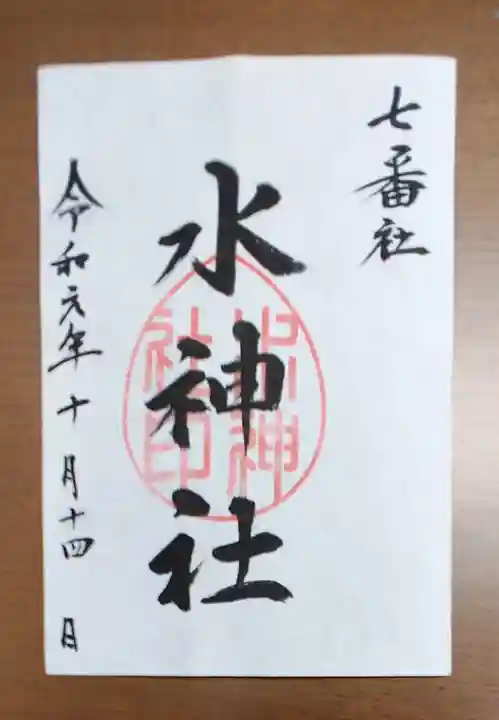 七番社
水神社
水神社印
令和元年十月十四日